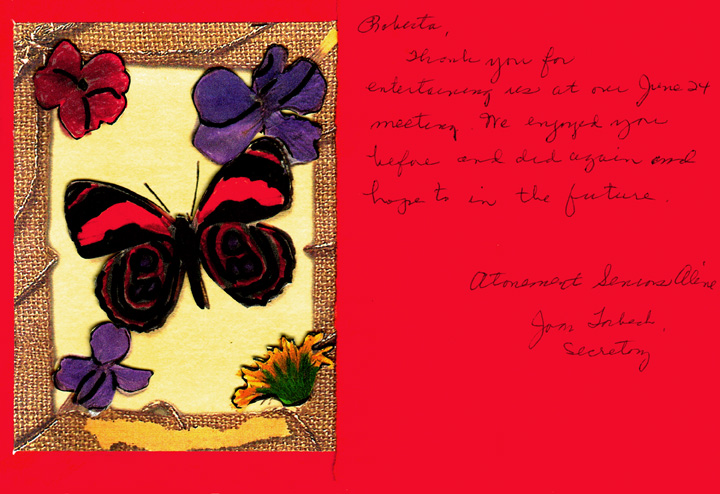 Roberta,
Thank you for
entertaining us at our June 24
meeting. We enjoyed you
before and did again and
hope to in the future.
Atonement Seniors Alive
Secretary